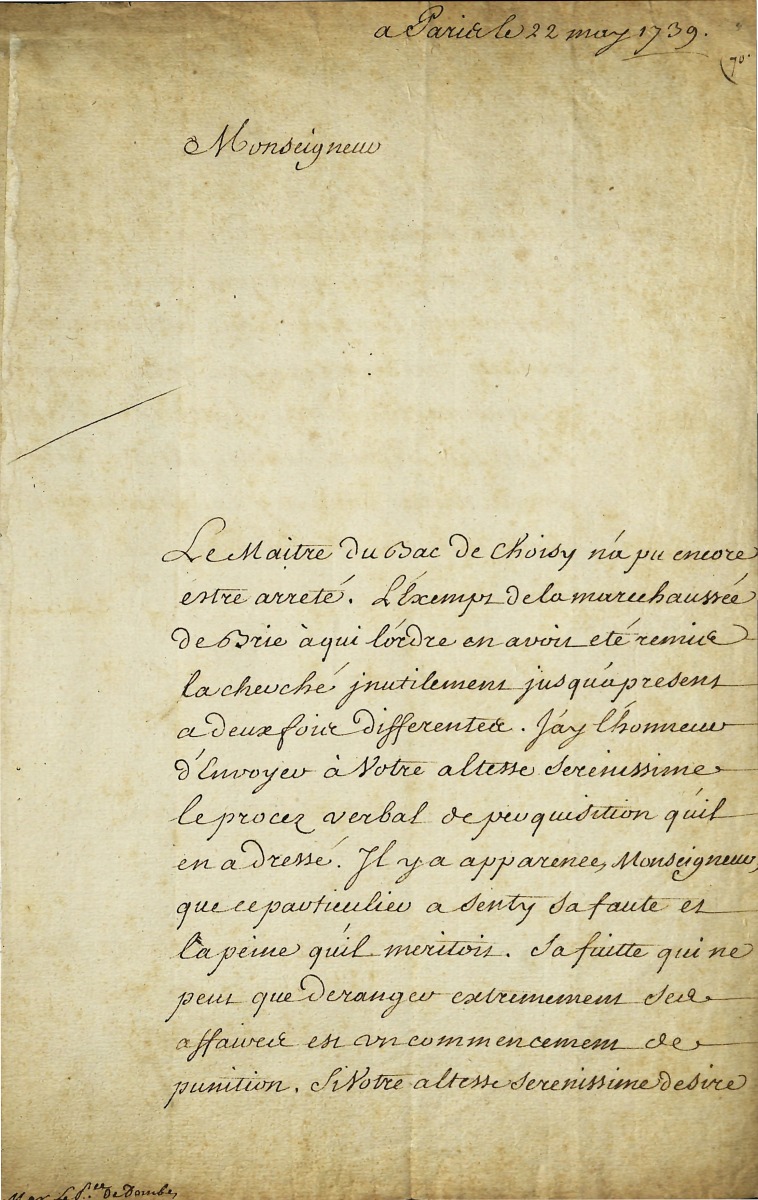 a Paris le 22 may 1739.
(70.
Monseigneur
Le Maitre du Bac de Choisy n'a pu encore
estre arreté. L'Exempt de la marechaussée
de Brie à qui l'ordre en avoit eté remis
la cherché jnutilement jusqu'a present
a deux fois differentes. J'ay l'honneur
d'Envoyer à Votre altesse serenissime
le procez verbal de perquisition qu'il
en a dressé. Il y a apparence, Monseigneur,
que ce particulier a senty sa faute et
la peine qu'il meritoit. Sa fuitte qui ne
peut que deranger extremement ses
affaires est vn commencement de
punition. Si Votre altesse serenissime desire
Mgr le P.ce De Dombes